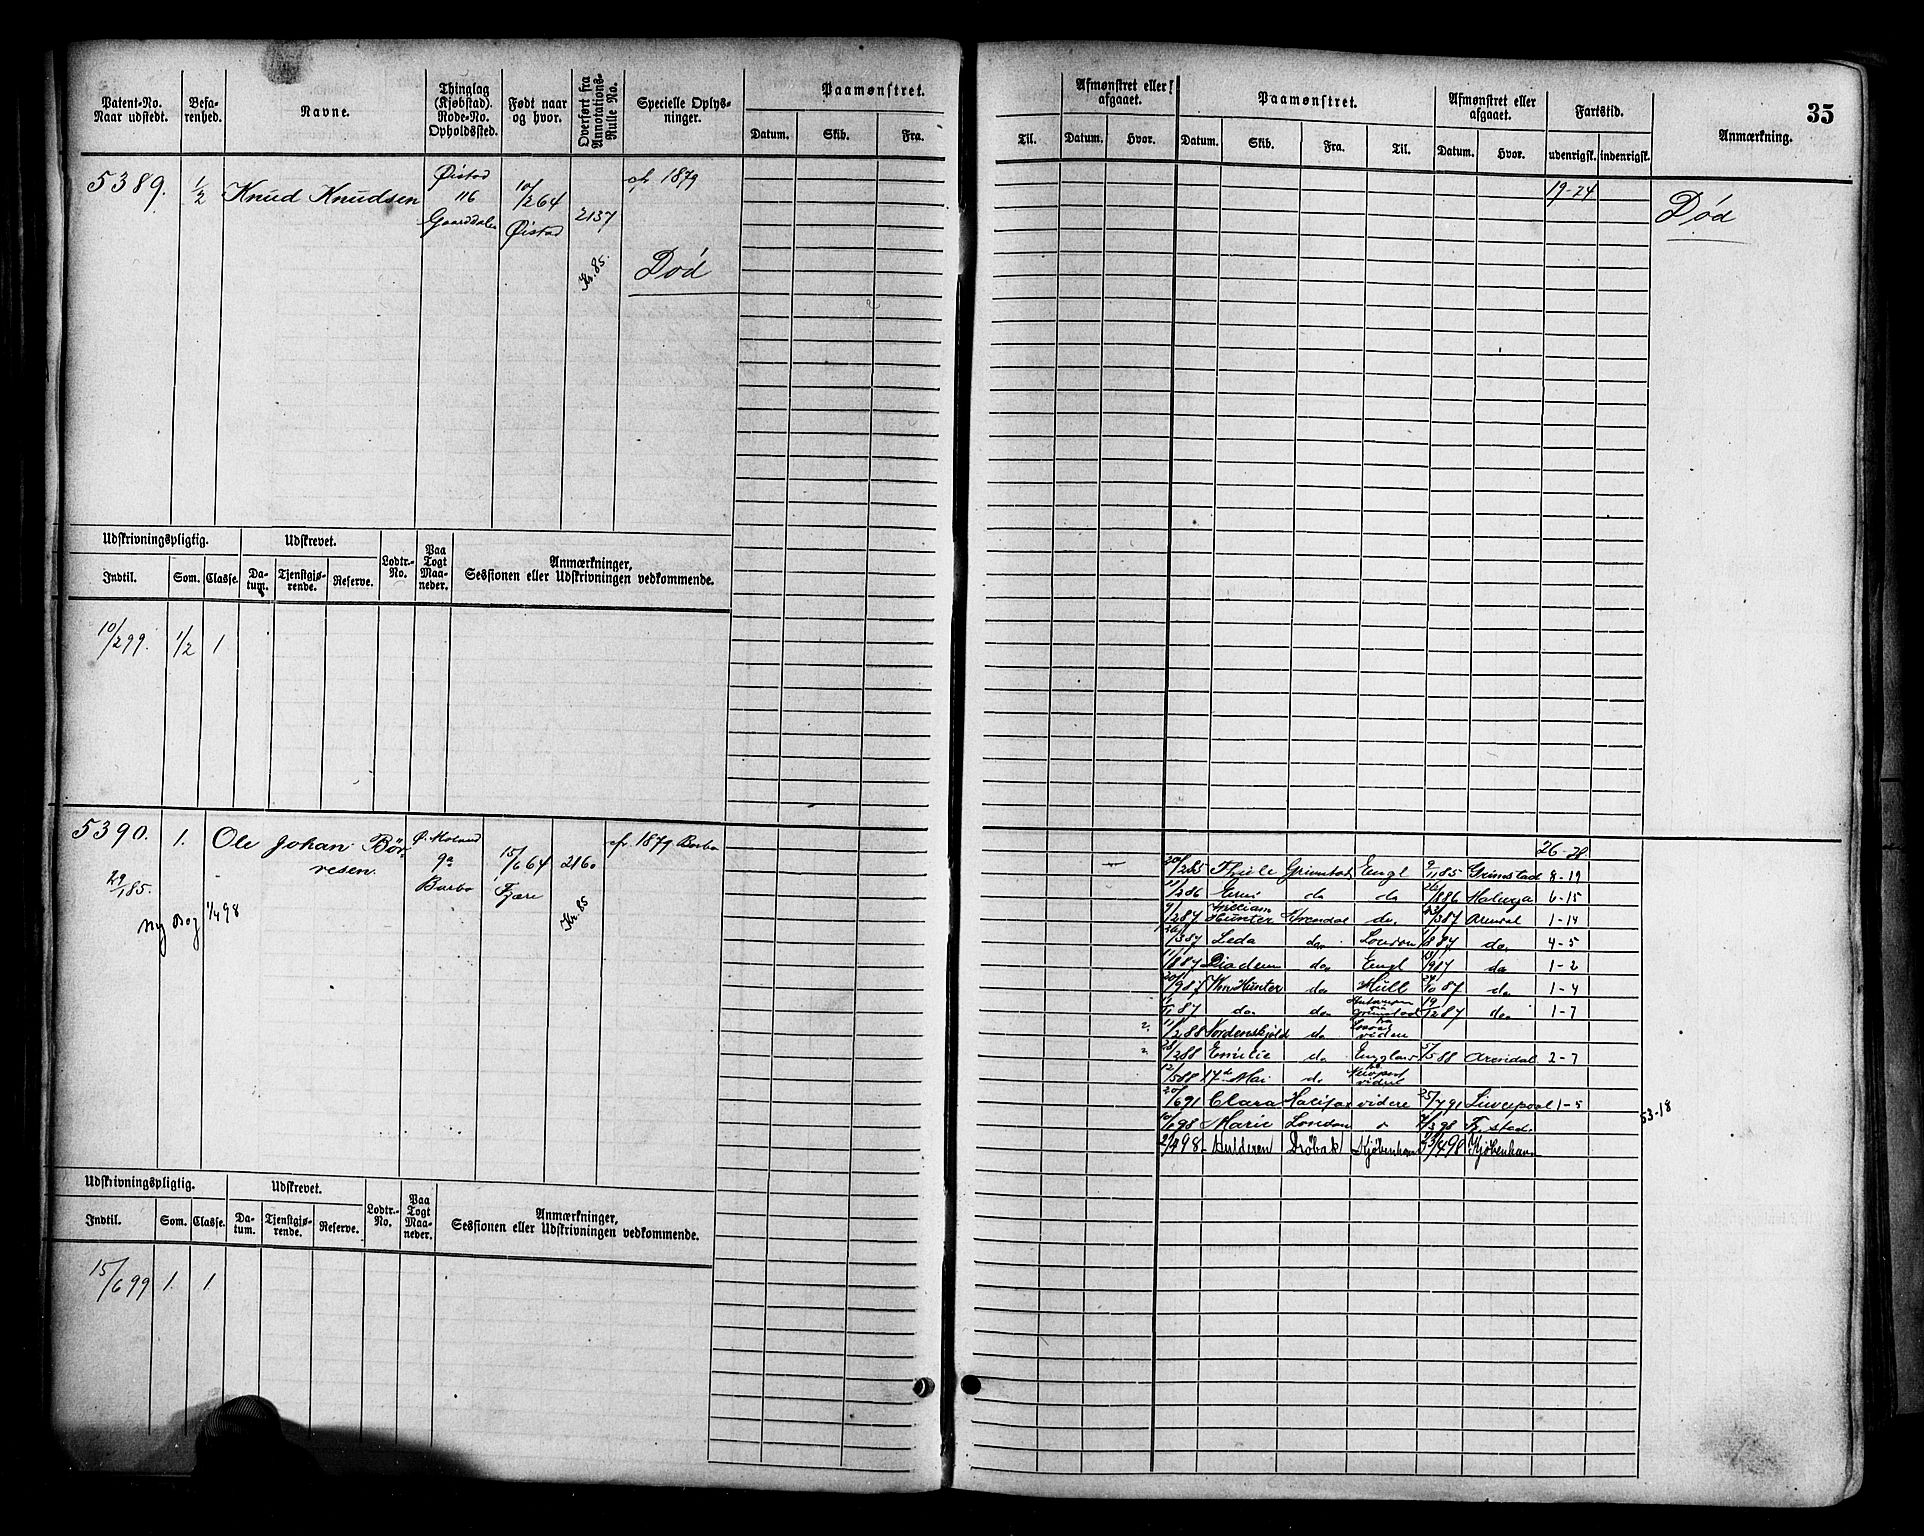 35
Patent-No. Naar udstedt.
Befarenhed.
Navne.
Thinglag (Kjøbstad). Rode-No. Opholdssted.
Født naar og hvor.
Overført fra Annotations-Rulle No.
Specielle Oplysninger.
Paamønstret.
Datum. Skib. Fra.
Til.
Afmønstret eller afgaaet.
Datum. Hvor.
Paamønstret.
Datum. Skib. Fra. Til.
Afmønstret eller afgaaet.
Datum. Hvor.
Fartstid.
udenrigsk. indenrigsk.
Anmærkning.
5389. 1/2 Knud Knudsen
Øistad
116
Gaarddalen
10/2 64
Øistad
2137
Kr. 85.
cfr 1879
Død
19-24
Død
Udskrivningspligtig.
Indtil. Som. Classe.
Udskrevet.
Datum. Tjenstgjørende. Reserve.
Lodtr.-No.
Paa Togt Maaneder.
Anmærkninger,
Sessionen eller Udskrivningen vedkommende.
10/2 99. 1/2 1
5390. 1. Ole Johan Börresen.
29/1 85.
Ny Bog 1/4 98
Ø. Moland
9a
Barbo
15/6 64
Fjære
2160
Kr. 85
cfr. 1879 Barbo
26-28
20/2 85 Thiele Grimstad Engl 9/11 85 Grimstad 8-19
11/2 86 do do 26/8 86 6-15
9/2 87 William Hunter Arendal do. 23/3 87 Arendal 1-14
26/3 87 Leda do. London 1/8 87 do 4-5
11/8 87 Diadem do Engl 13/9 87 do 1-2
20/9 87 Wm Hunter do Hull 24/10 87 do 1-4
87 do do Antwerpen Grimstad 19/12 87 do 1-7
11/2 88 Nordenskjöld do videre
28/2 88 Emilie do England 5/5 88 Arendal 2-7
12/5 88 17de Mai do Newport videre
20/6 91 Clara Halifax videre 25/7 91 Liverpool 1-5
53-18
98 Marie London 98 Fr.stad.
2/4 98 Hulderen Drøbak Kjøbenhavn 23/4 98 Kjøbenhavn
Udskrivningspligtig.
Indtil. Som. Classe.
Udskrevet.
Datum. Tjenstgjørende. Reserve.
Lodtr.-No.
Paa Togt Maaneder.
Anmærkninger,
Sessionen eller Udskrivningen vedkommende.
15/6 99 1. 1.